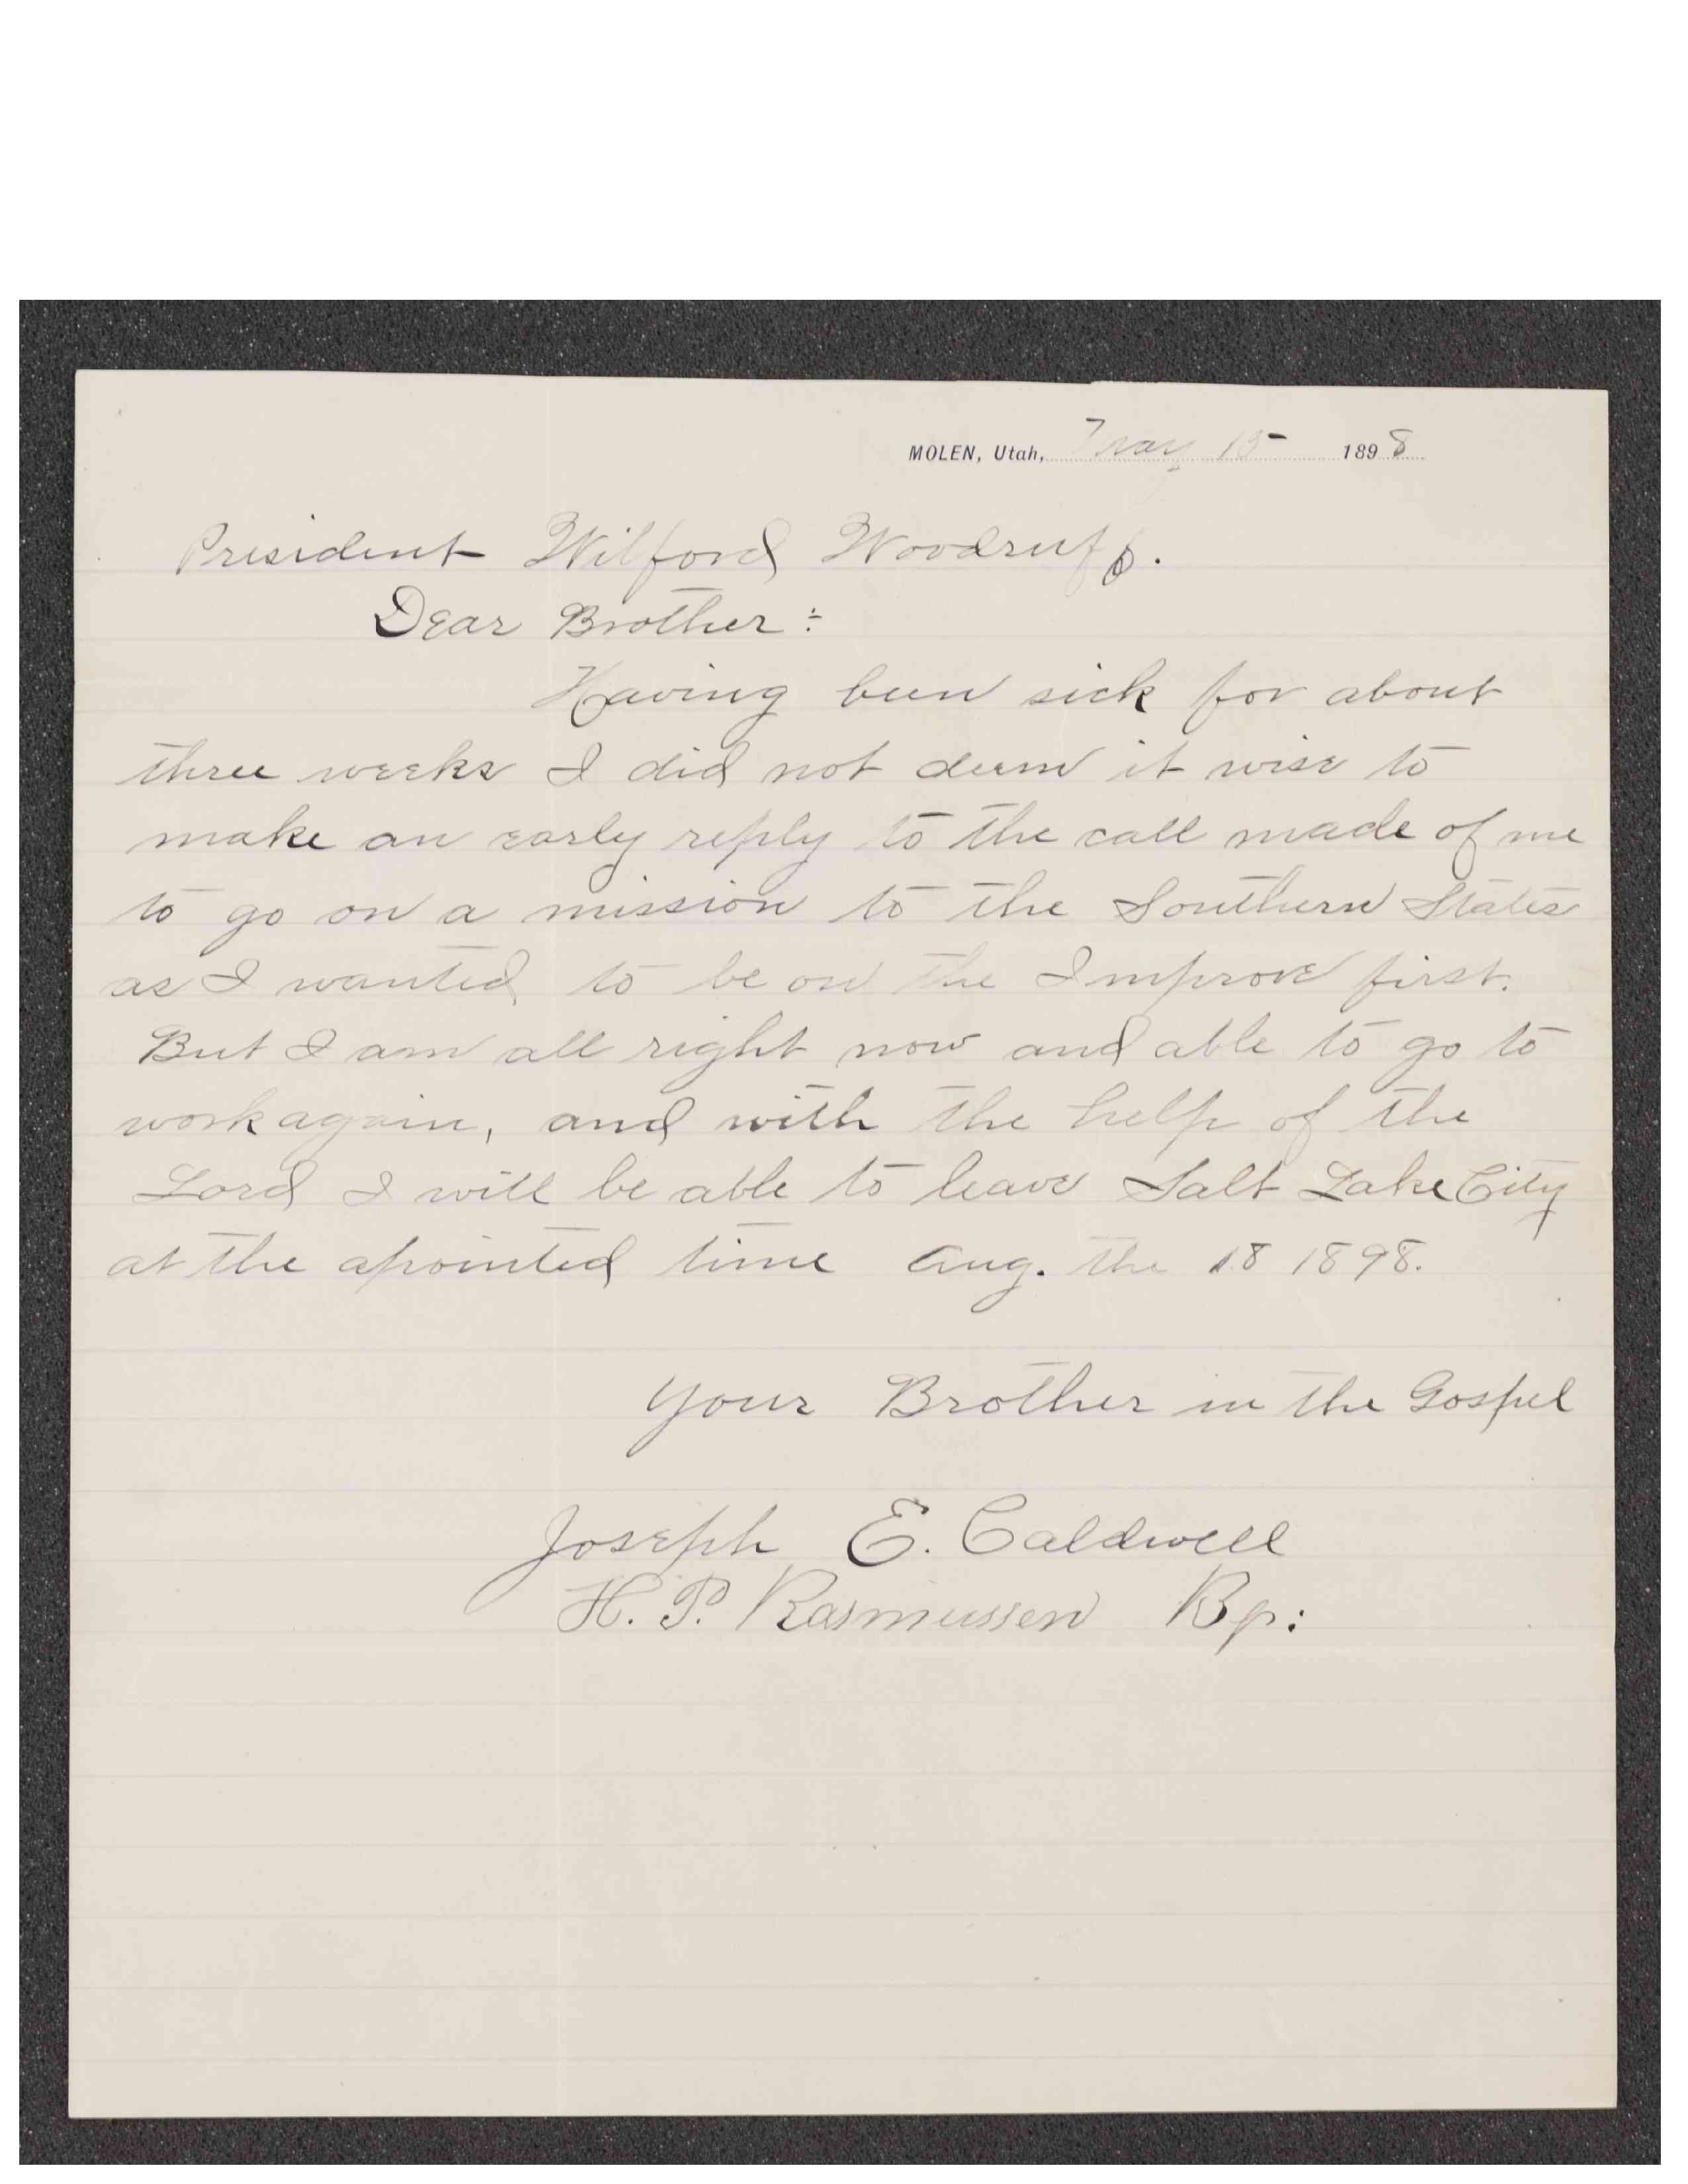 MOLEN, Utah, May 15 1898
President Wilford Woodruff.
Dear Brother:
Having been sick for about
three weeks I did not deem it wise to
make an early reply to the call made of me
to go on a mission to the Southern States
as I wanted to be on the Improve first.
But I am all right now and able to go to
work again, and with the help of the
Lord I will be able to leave Salt Lake City
at the apointed time Aug. the 18 1898.
Your Brother in the Gospel
Joseph E. Caldwell
H. P. Rasmussen Bp: